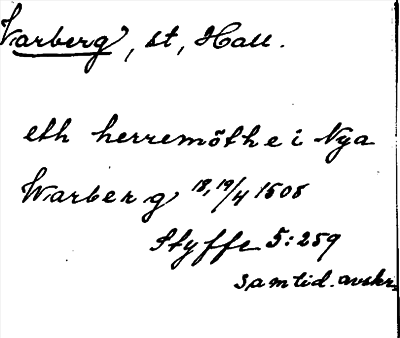 Varberg, st, Hall.
eth herremöthe i Nya
Warberg 18,19/4 1508
Styffe 5:259
samtid. avskr.